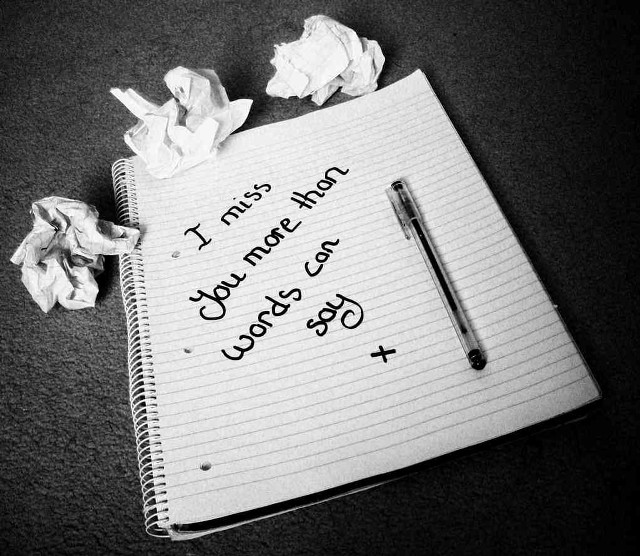 I miss
You more than
words can
say
x